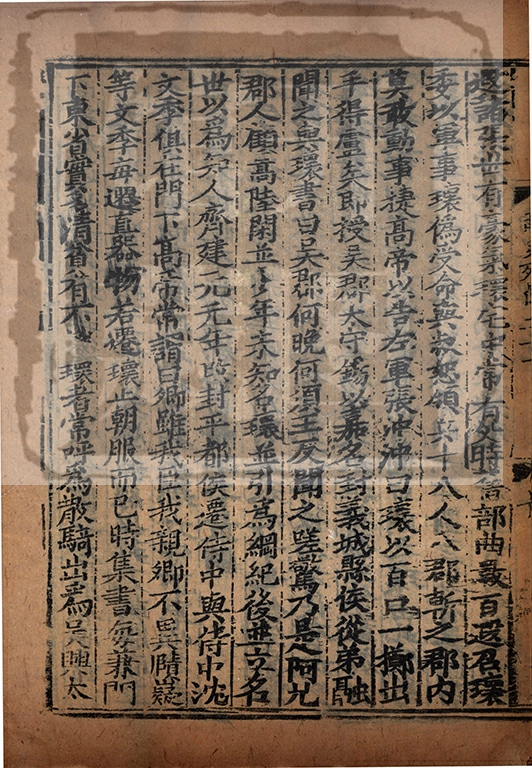 遐諸張世有豪氣瓌宅中常有父時舊部曲數百遐召瓌
委以軍事瓌僞受命與叔恕領兵十八人入郡斬之郡內
莫敢動事捷高帝以告左軍張沖沖曰瓌以百口一擲出
手得盧矣即授吳郡太守錫以嘉名封義城縣侯從弟融
聞之與瓌書曰吳郡何晚何須王反聞之嗟驚乃是阿兄
郡人顧暠陸閑並少年未知名瓌並引爲綱紀後並立名
世以爲知人齊建元元年改封平都侯遷侍中與侍中沈
文季俱在門下高帝常謂曰卿雖我臣我親卿不異賾嶷
等文季每還直器物若遷瓌止朝服而已時集書每兼門
下東省實多清貧有不 瓌者常呼爲散騎出爲吳興太